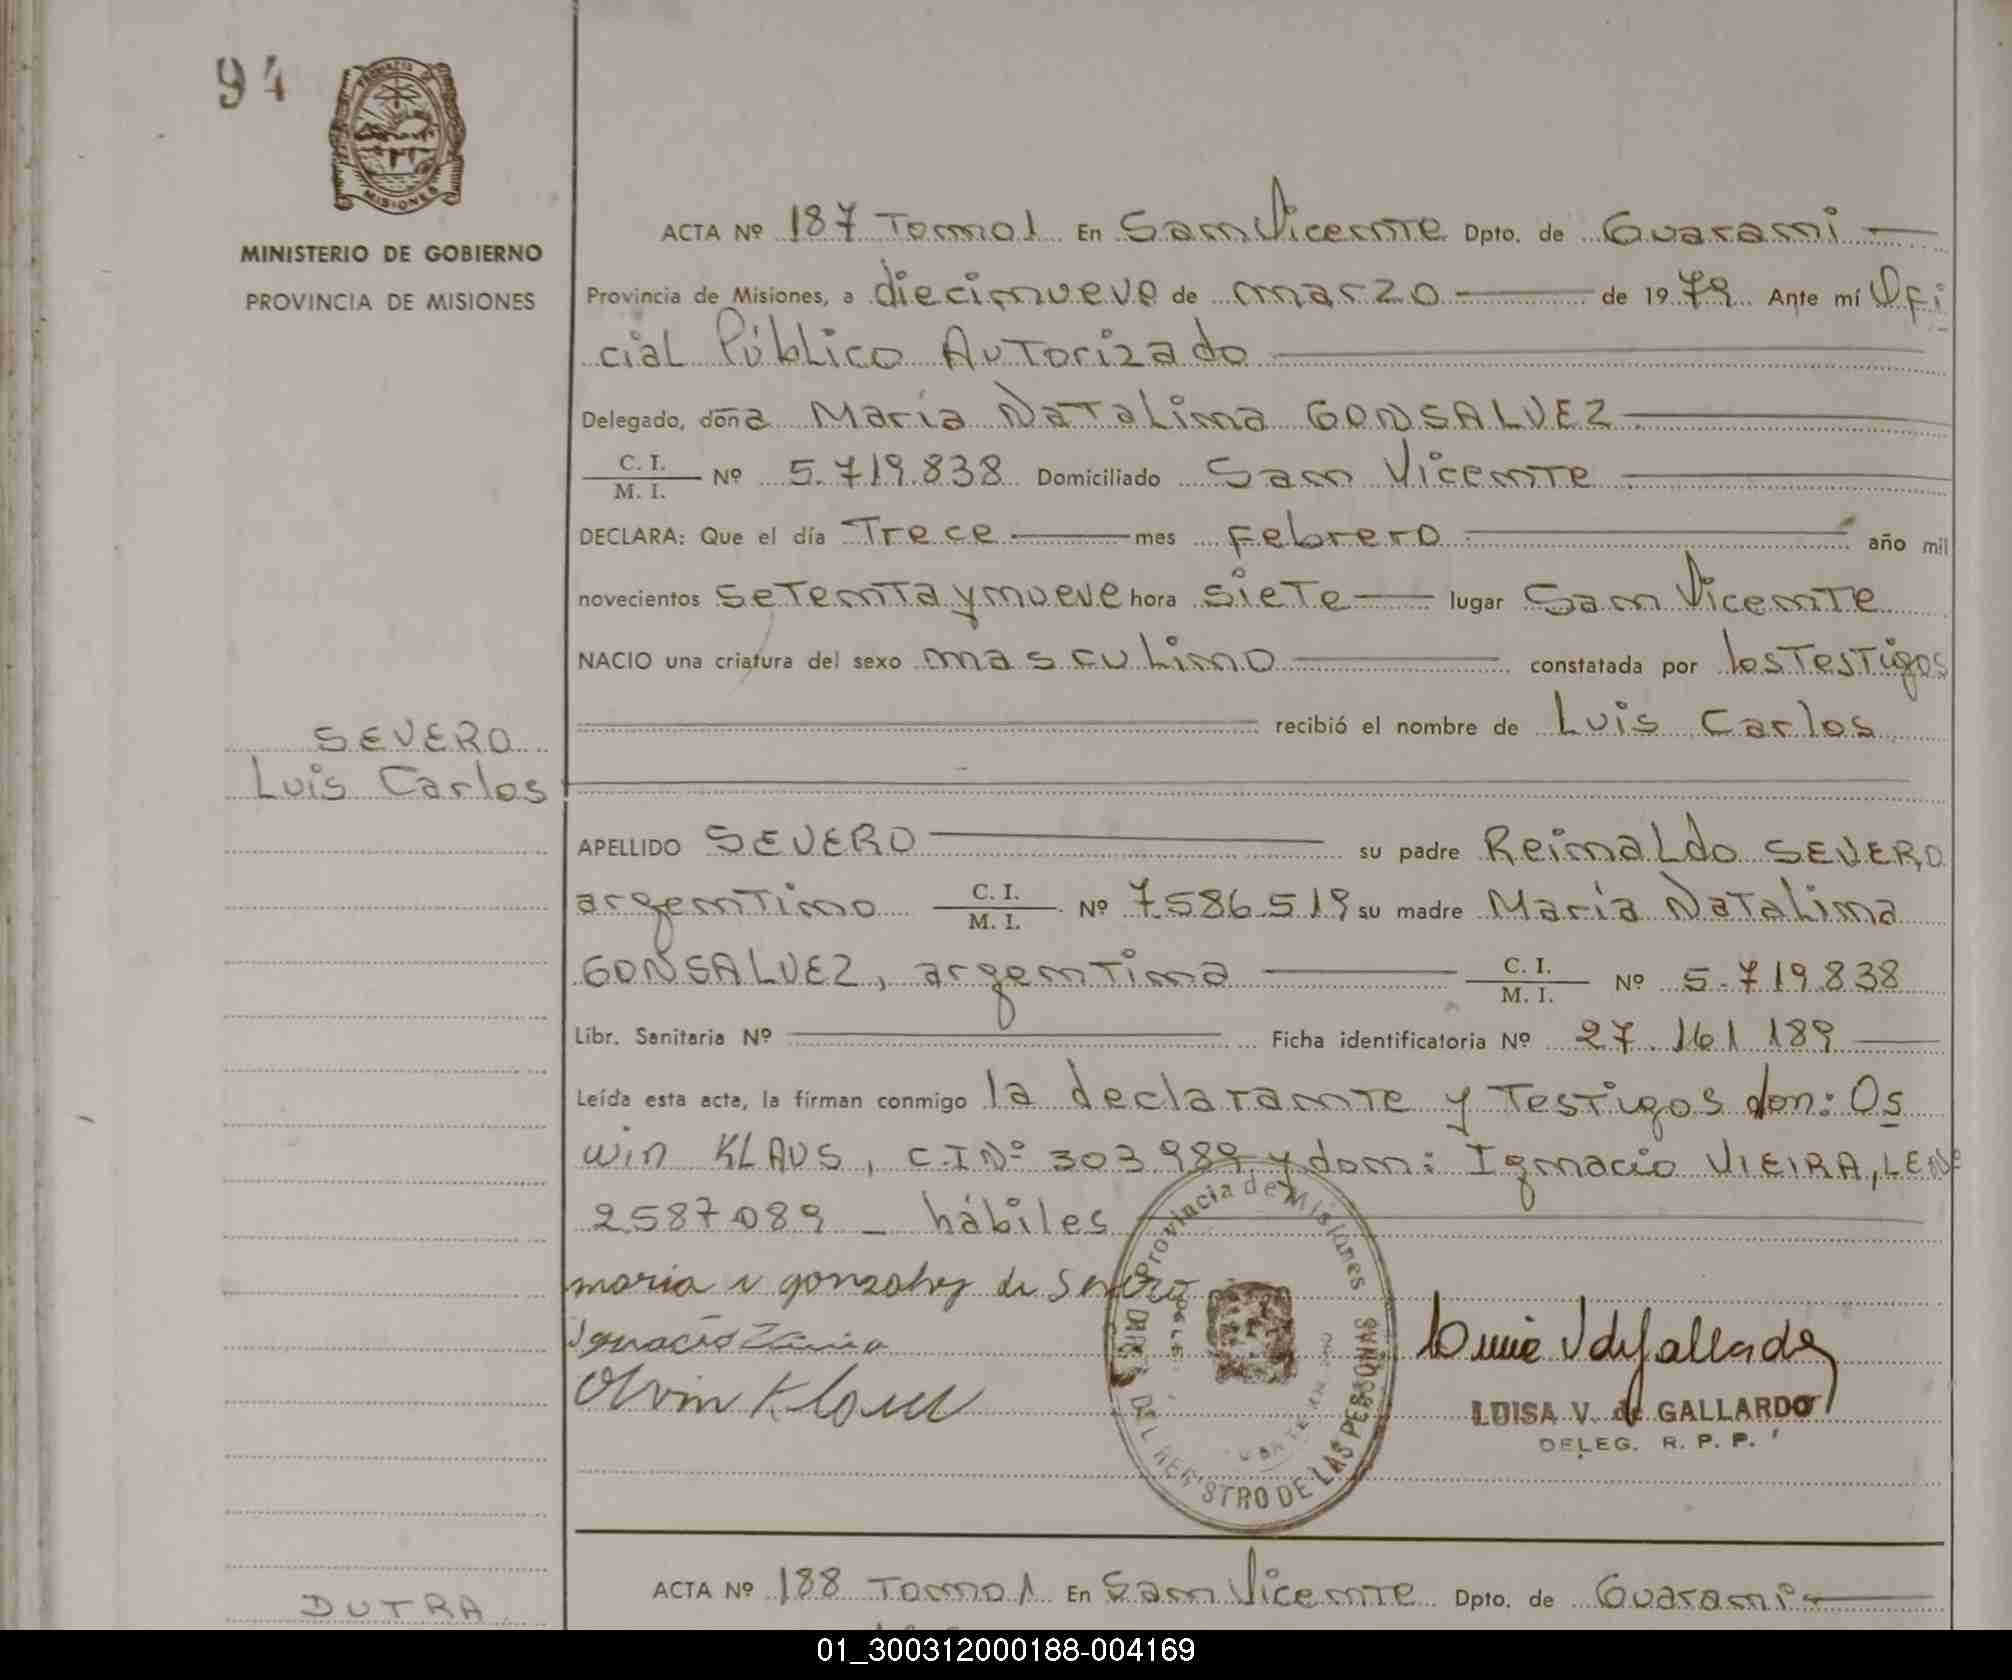 94
PROVINCIA DE
MISIONES
MINISTERIO DE GOBIERNO
PROVINCIA DE MISIONES
ACTA Nº 187 Tomo 1 En San Vicente Dpto. de Guarani
Provincia de Misiones, a diecinueve de marzo de 1979 Ante mí Ofi
cial Público Autorizado
Delegado, doña María Natalina GONSALVEZ
C. I.
M. I. Nº 5.719.838 Domiciliado San Vicente
DECLARA: Que el día Trece mes Febrero año mil
novecientos setenta y nueve hora siete lugar San Vicente
NACIO una criatura del sexo masculino constatada por los Testigos
recibió el nombre de Luis Carlos
SEVERO
Luis Carlos
APELLIDO SEVERO su padre Reinaldo SEVERO
argentino C. I.
M. I. Nº 7586519 su madre María Natalina
GONSALVEZ, argentina C. I.
M. I. Nº 5.719.838
Libr. Sanitaria Nº Ficha identificatoria Nº 27.161.189
Leída esta acta, la firman conmigo la declarante y Testigos don: Os
win KLAUS, C.I Nº 303989 y don: Ignacio VIEIRA, L.E Nº
2587089 _ hábiles
maria n gonzalvez de Severo
Ignacio Vieira
Olvin Klaus
Provincia de Misiones
DEL REGISTRO DE LAS PERSONAS
LUISA V. de GALLARDO
DELEG. R. P. P.
ACTA Nº 188 Tomo 1 En San Vicente Dpto. de Guarani
DUTRA
01_300312000188-004169